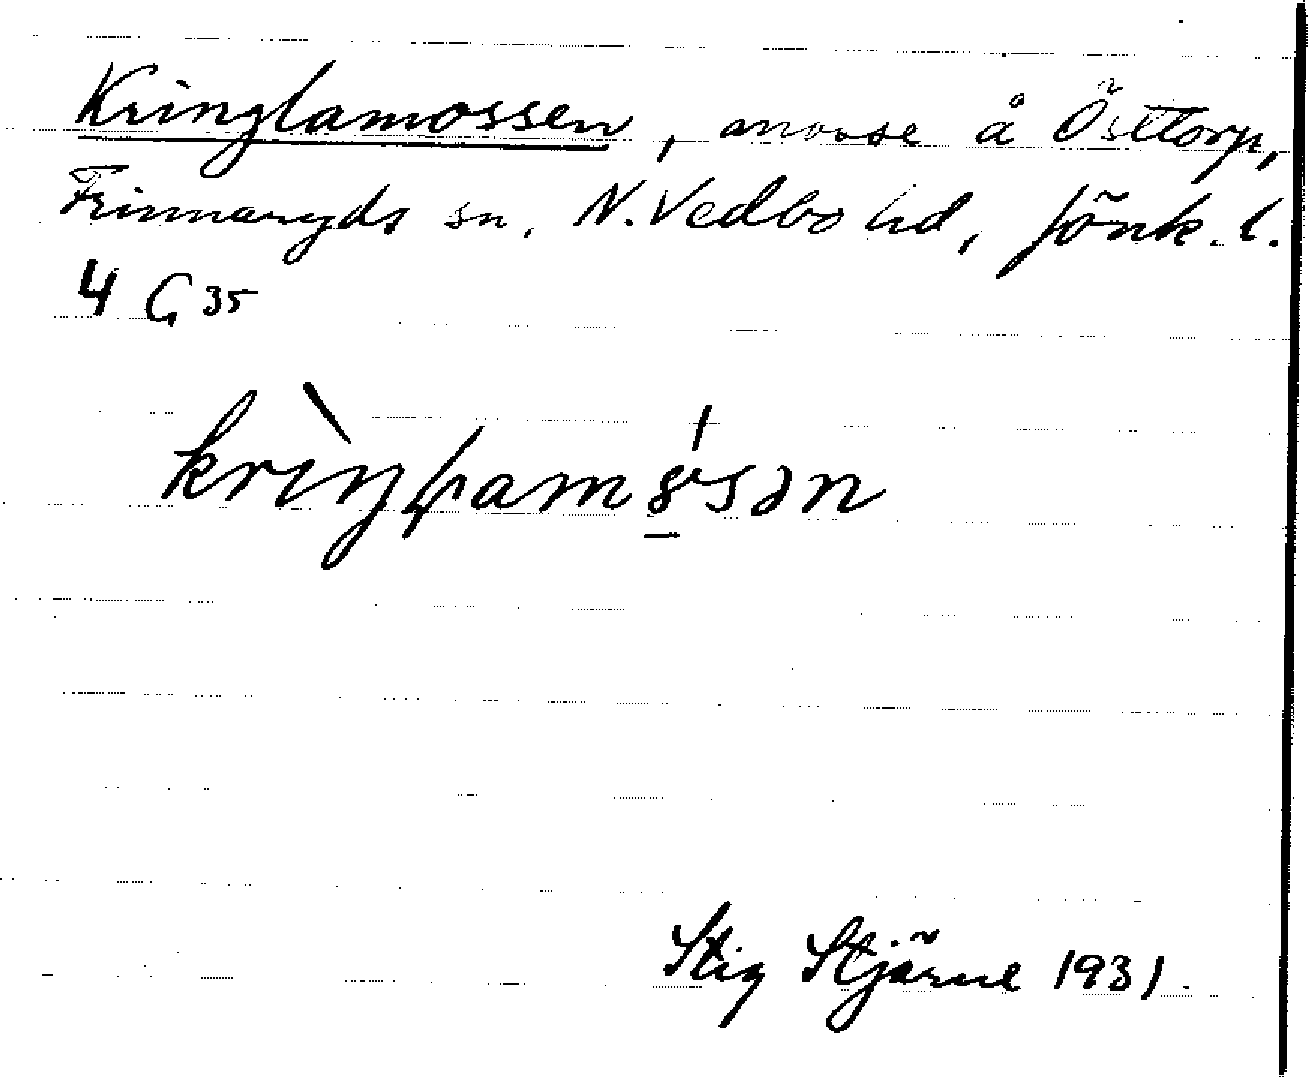 Kringlamossen, mosse å Östtorp,
Frinnaryds sn, N. Vedbo hd, Jönk. l.
4 G 35
Stig Stjärne 1931.